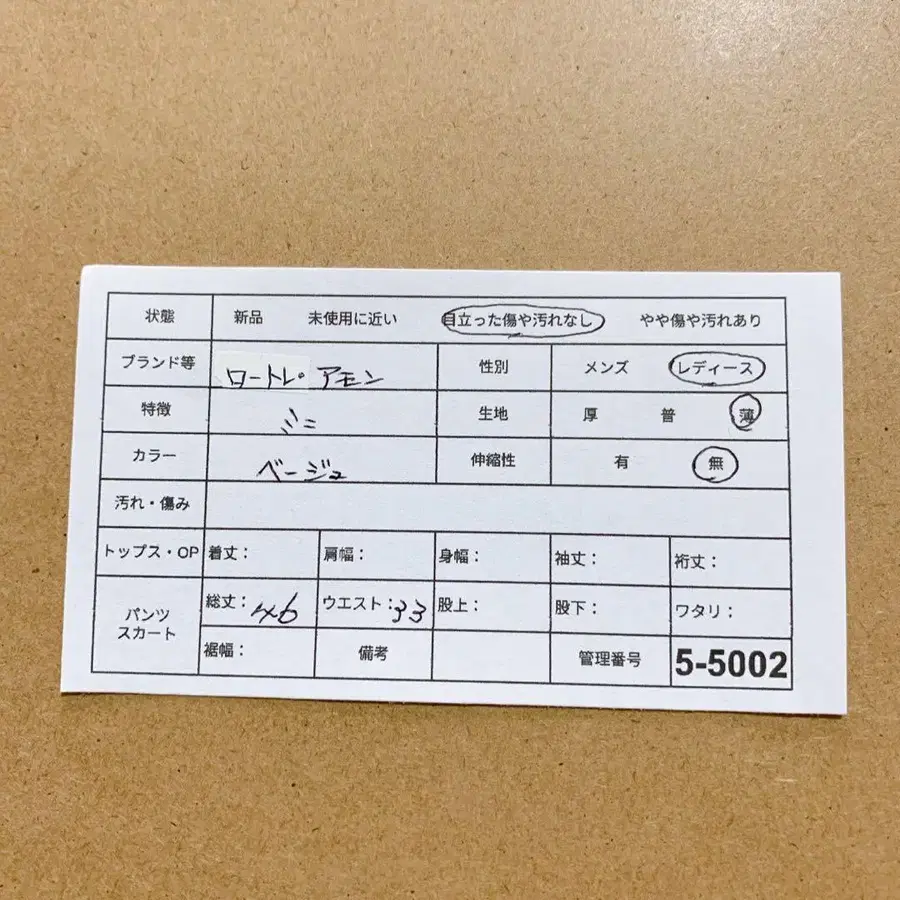 状態 新品 未使用に近い 目立った傷や汚れなし やや傷や汚れあり
ブランド等 ロートレ・アモン 性別 メンズ レディース
特徴 ミニ 生地 厚 普 薄
カラー ベージュ 伸縮性 有 無
汚れ・傷み
トップス・OP 着丈： 肩幅： 身幅： 袖丈： 裄丈：
パンツ スカート 総丈：46 ウエスト：33 股上： 股下： ワタリ：
裾幅： 備考 管理番号 5-5002